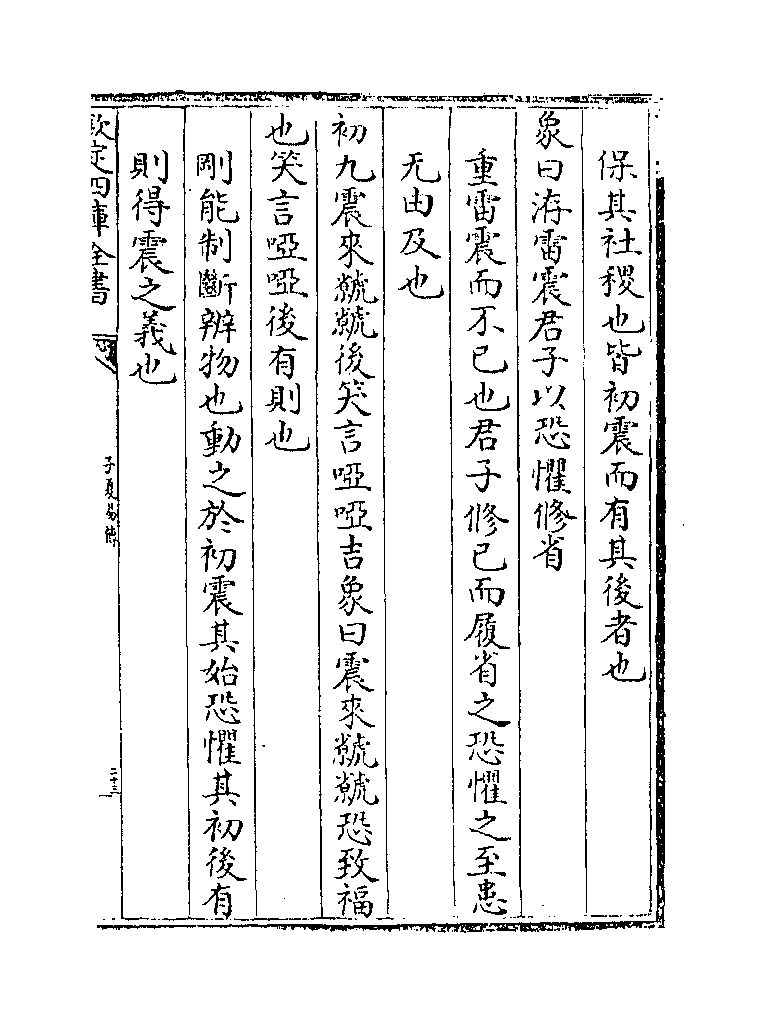 保其社稷也皆初震而有其後者也
象曰洊雷震君子以恐懼修省
重雷震而不已也君子修已而履省之恐懼之至患
无由及也
初九震來虩虩後笑言啞啞吉象曰震來虩虩恐致福
也笑言啞啞後有則也
剛能制斷辨物也動之於初震其始恐懼其初後有
則得震之義也
欽定四庫全書
子夏易傳
二十三